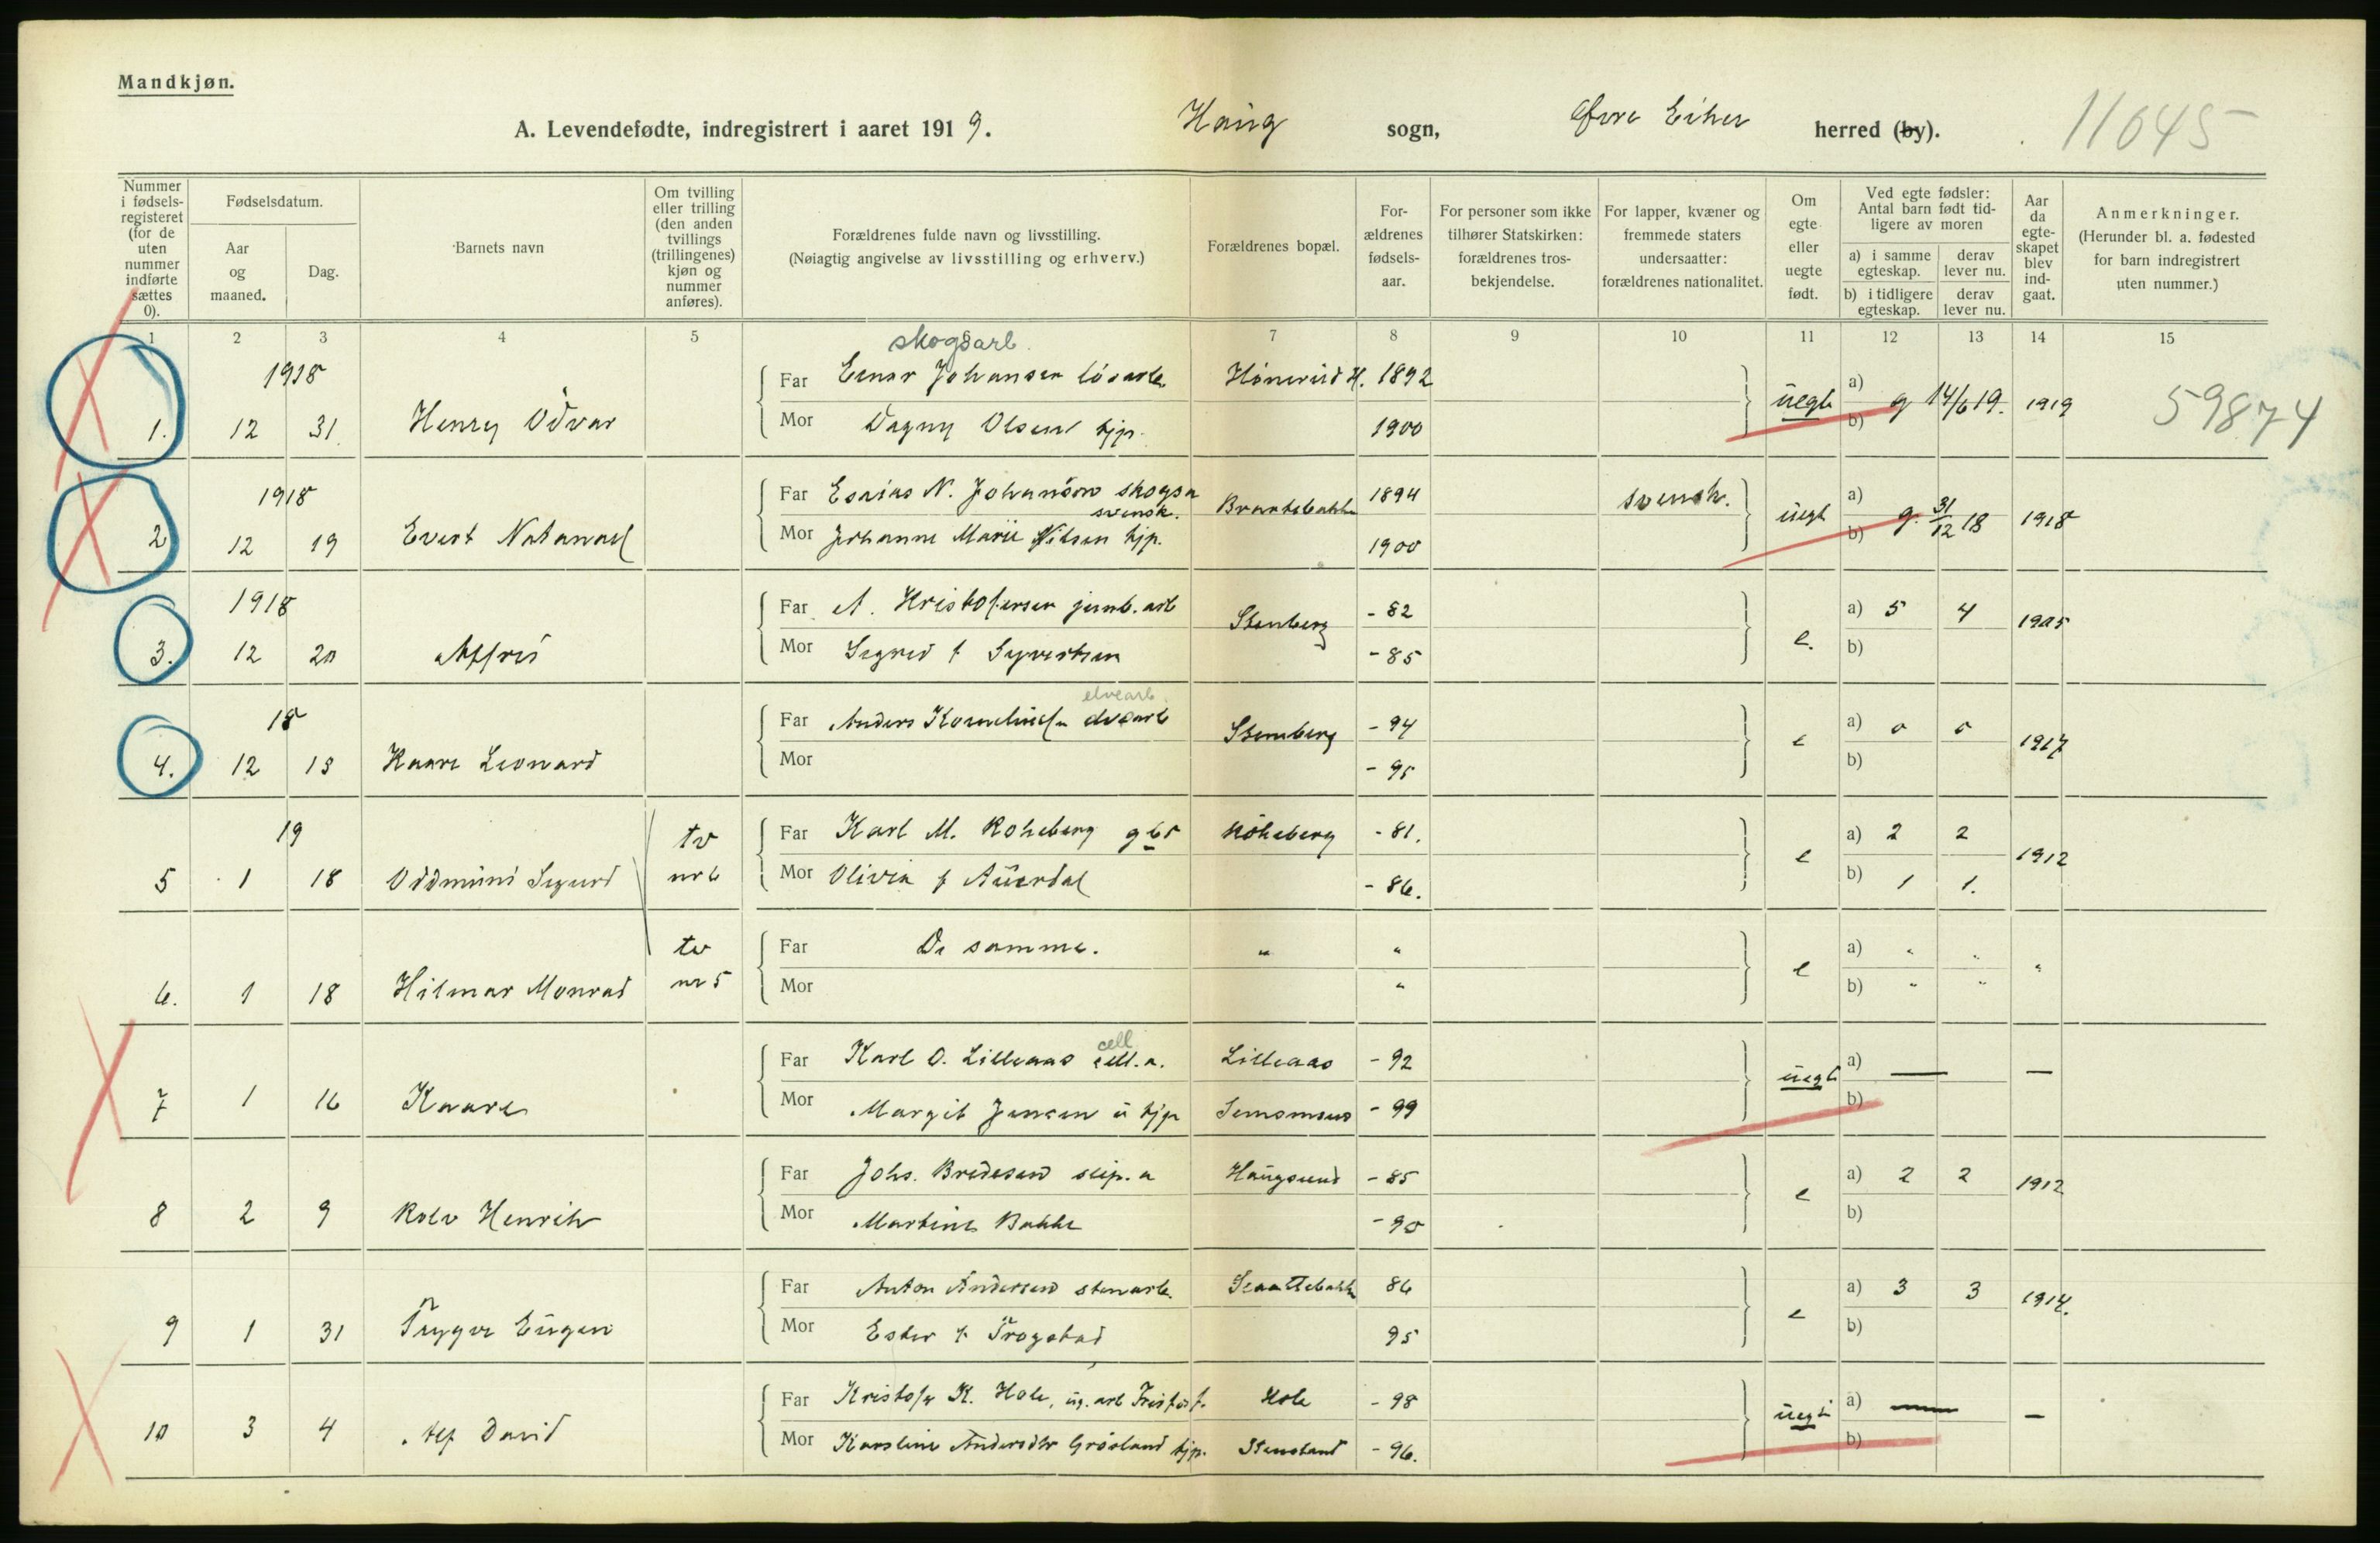 Mandkjøn.
A. Levendefødte, indregistrert i aaret 1919. Haug sogn, Øvre Eiker herred (by). 11645
Nummer i fødselsregisteret (for de uten nummer indførte sættes 0).
Fødselsdatum.
Aar og maaned.
Dag.
Barnets navn
Om tvilling eller trilling (den anden tvillings (trillingenes) kjøn og nummer anføres).
Forældrenes fulde navn og livsstilling.
(Nøiagtig angivelse av livsstilling og erhverv.)
Forældrenes bopæl.
Forældrenes fødselsaar.
For personer som ikke tilhører Statskirken: forældrenes trosbekjendelse.
For lapper, kvæner og fremmede staters undersaatter: forældrenes nationalitet.
Om egte eller uegte født.
Ved egte fødsler: Antal barn født tidligere av moren
a) i samme egteskap.
derav lever nu.
b) i tidligere egteskap.
derav lever nu.
Aar da egteskapet blev indgaat.
Anmerkninger.
(Herunder bl. a. fødested for barn indregistrert uten nummer.)
1 2 3 4 5 7 8 9 10 11 12 13 14 15
skogsarb.
1918 Far Einar Johansen løsarb. Hønerud H. 1892 a)
1. 12 31. Henry Odvar Mor Dagny Olsen tjp. 1900 uegte b) g 14/6 19. 1919 59874
1918 Far Esaias N. Johanson skogsa svensk. Brantebakke 1894 svensk. a)
2 12 19 Evert Natanael Mor Johanne Marie Nilsen tjp. 1900 uegt b) g. 31/12 18 1918
1918 Far A. Kristofersen jernb. arb Stenberg - 82 a) 5 4 1905
3. 12 20 Alfred Mor Sigrid f Syvertsen - 85 e. b)
elvearb.
18 Far Anders Kornelius[en] elvearb Stenberg - 94 a) 0 0 1917
4. 12 18 Kaare Leonard Mor - 95 e b)
19 tv Far Karl M. Kokeberg gbr Kokeberg - 81. a) 2 2 1912
5 1 18 Oddmund Sigurd nr 6 Mor Olivia f Auerdal - 86. e b) 1 1.
tv Far De samme. " " a) " " "
6. 1 18 Hilmar Monrad nr 5 Mor " e b) " "
cell
Far Karl O. Lilleaas cell. a. Lilleaas - 92 a) — —
7 1 16 Kaare Mor Margit Jensen u tjp Semsmoen - 99 uegt b)
Far Johs. Bredesen slip. a Haugsund - 85 a) 2 2 1912
8 2 9 Rolv Henrik Mor Martine Bakke - 90 e b)
Far Anton Andersen stenarb. 86 a) 3 3 1914.
9 1 31 Trygve Eugen Mor Ester f. Trøgstad 95 e b)
Far Kristofer K. Hole, ug. arb Hole - 98 a) — —
10 3 4 Alf David Mor Karoline Andersdtr Grøsland tjp. Stensland - 96. uegt b)